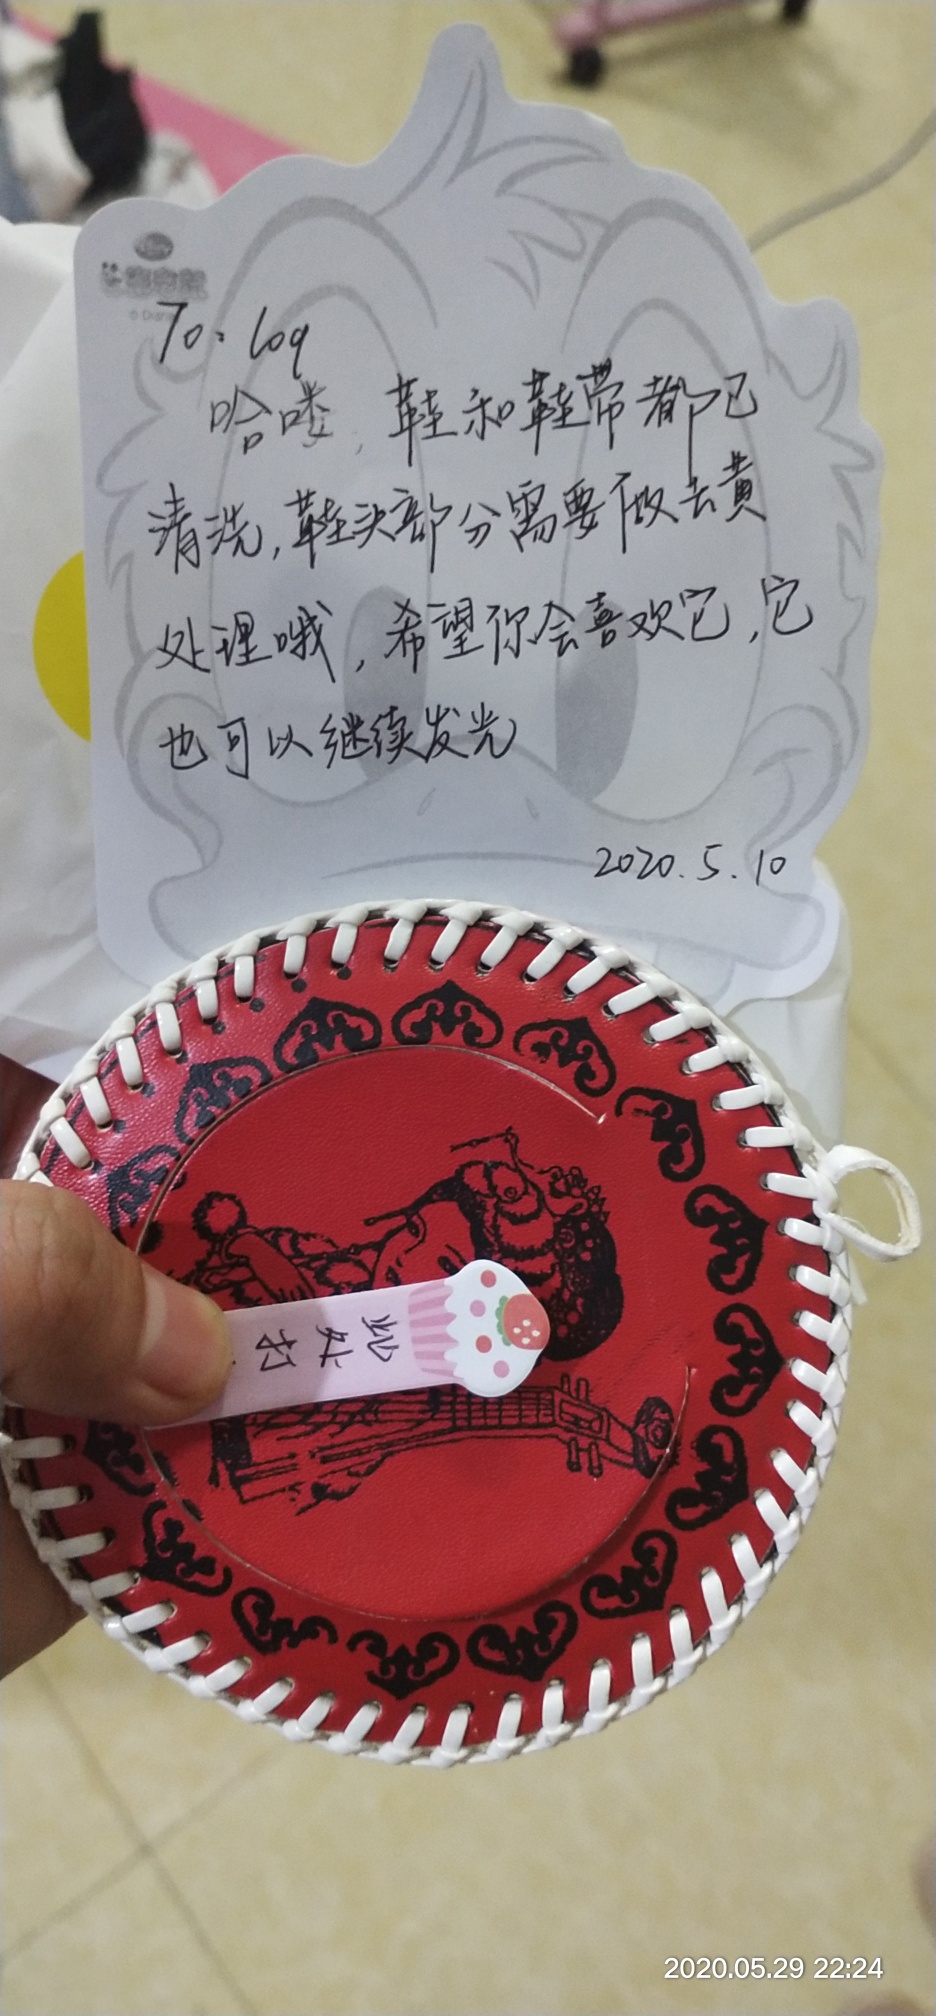 To: log
哈喽，鞋和鞋带都已
清洗，鞋头部分需要做去黄
处理哦，希望你会喜欢它，它
也可以继续发光
2020.5.10
此处打
2020.05.29 22:24